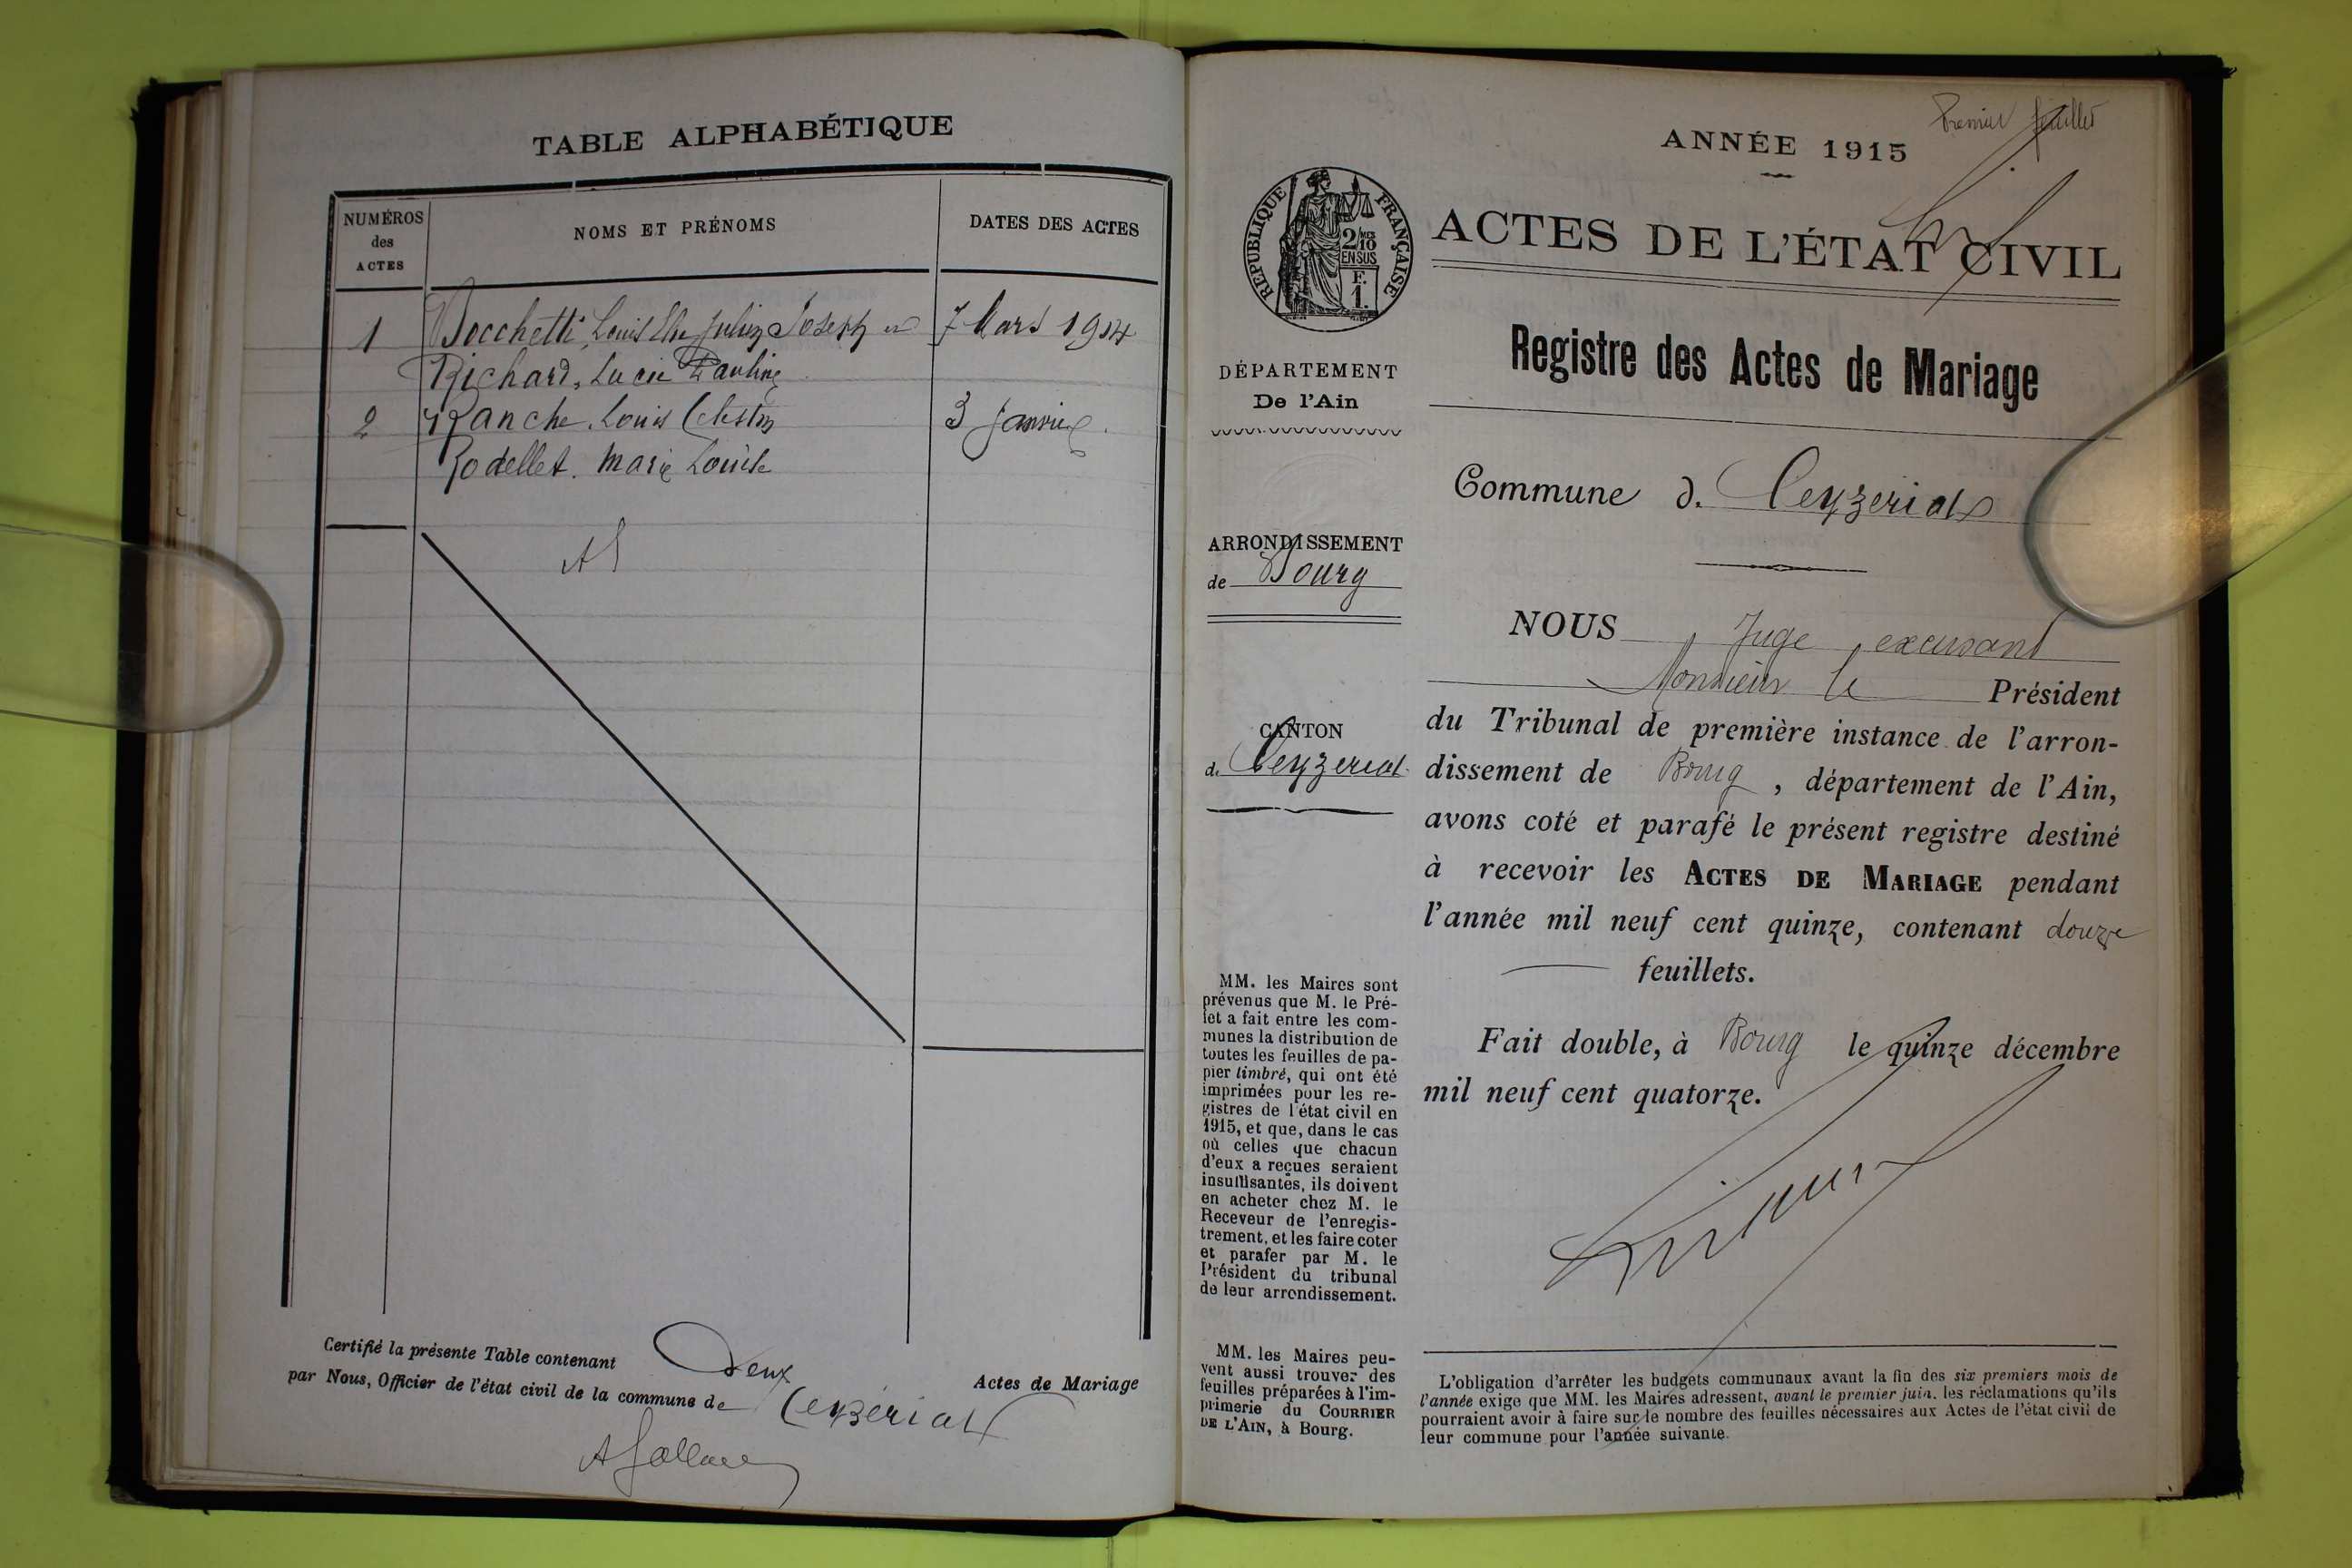 TABLE ALPHABÉTIQUE
NUMÉROS
des
ACTES
NOMS ET PRÉNOMS
DATES DES ACTES
1 Bocchetti, Louis Joseph 7 Mars 1914
Richard, Lucie Pauline
2 Blanche, Louis Célestin 3 Janvier
Rodellet. Marie Louise
Certifié la présente Table contenant Deux Actes de Mariage
par Nous, Officier de l'état civil de la commune de Ceyzériat
Premier feuillet
ANNÉE 1915
RÉPUBLIQUE FRANÇAISE
2/10
EN SUS
F.
1.
ACTES DE L'ÉTAT CIVIL
Registre des Actes de Mariage
DÉPARTEMENT
De l'Ain
Commune d. Ceyzeriat
ARRONDISSEMENT
de Bourg
CANTON
de Ceyzeriat
NOUS Juge excusant
Monsieur le Président
du Tribunal de première instance de l'arron-
dissement de Bourg, département de l'Ain,
avons coté et parafé le présent registre destiné
à recevoir les ACTES DE MARIAGE pendant
l'année mil neuf cent quinze, contenant douze
feuillets.
Fait double, à Bourg le quinze décembre
mil neuf cent quatorze.
MM. les Maires sont
prévenus que M. le Pré-
fet a fait entre les com-
munes la distribution de
toutes les feuilles de pa-
pier timbré, qui ont été
imprimées pour les re-
gistres de l'état civil en
1915, et que, dans le cas
où celles que chacun
d'eux a reçues seraient
insuffisantes, ils doivent
en acheter chez M. le
Receveur de l'enregis-
trement, et les faire coter
et parafer par M. le
Président du tribunal
de leur arrondissement.
MM. les Maires peu-
vent aussi trouver des
feuilles préparées à l'im-
primerie du COURRIER
DE L'AIN, à Bourg.
L'obligation d'arrêter les budgets communaux avant la fin des six premiers mois de
l'année exige que MM. les Maires adressent, avant le premier juin, les réclamations qu'ils
pourraient avoir à faire sur le nombre des feuilles nécessaires aux Actes de l'état civil de
leur commune pour l'année suivante.